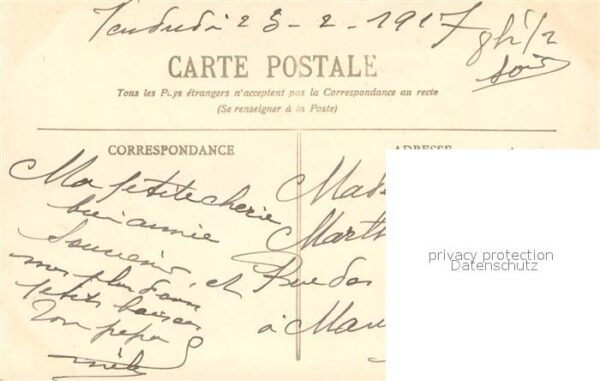 Vendredi 23-2-1917
8h 1/2
soir
CARTE POSTALE
Tous les Pays étrangers n'acceptent pas la Correspondance au recto
(Se renseigner à la Poste)
CORRESPONDANCE
ADRESSE
Ma petite cherie
bien aimée
Souvenir et
mes plus doux
petits baisers
Ton pepe
Made
Marth
Rue des
à Mau
privacy protection
Datenschutz